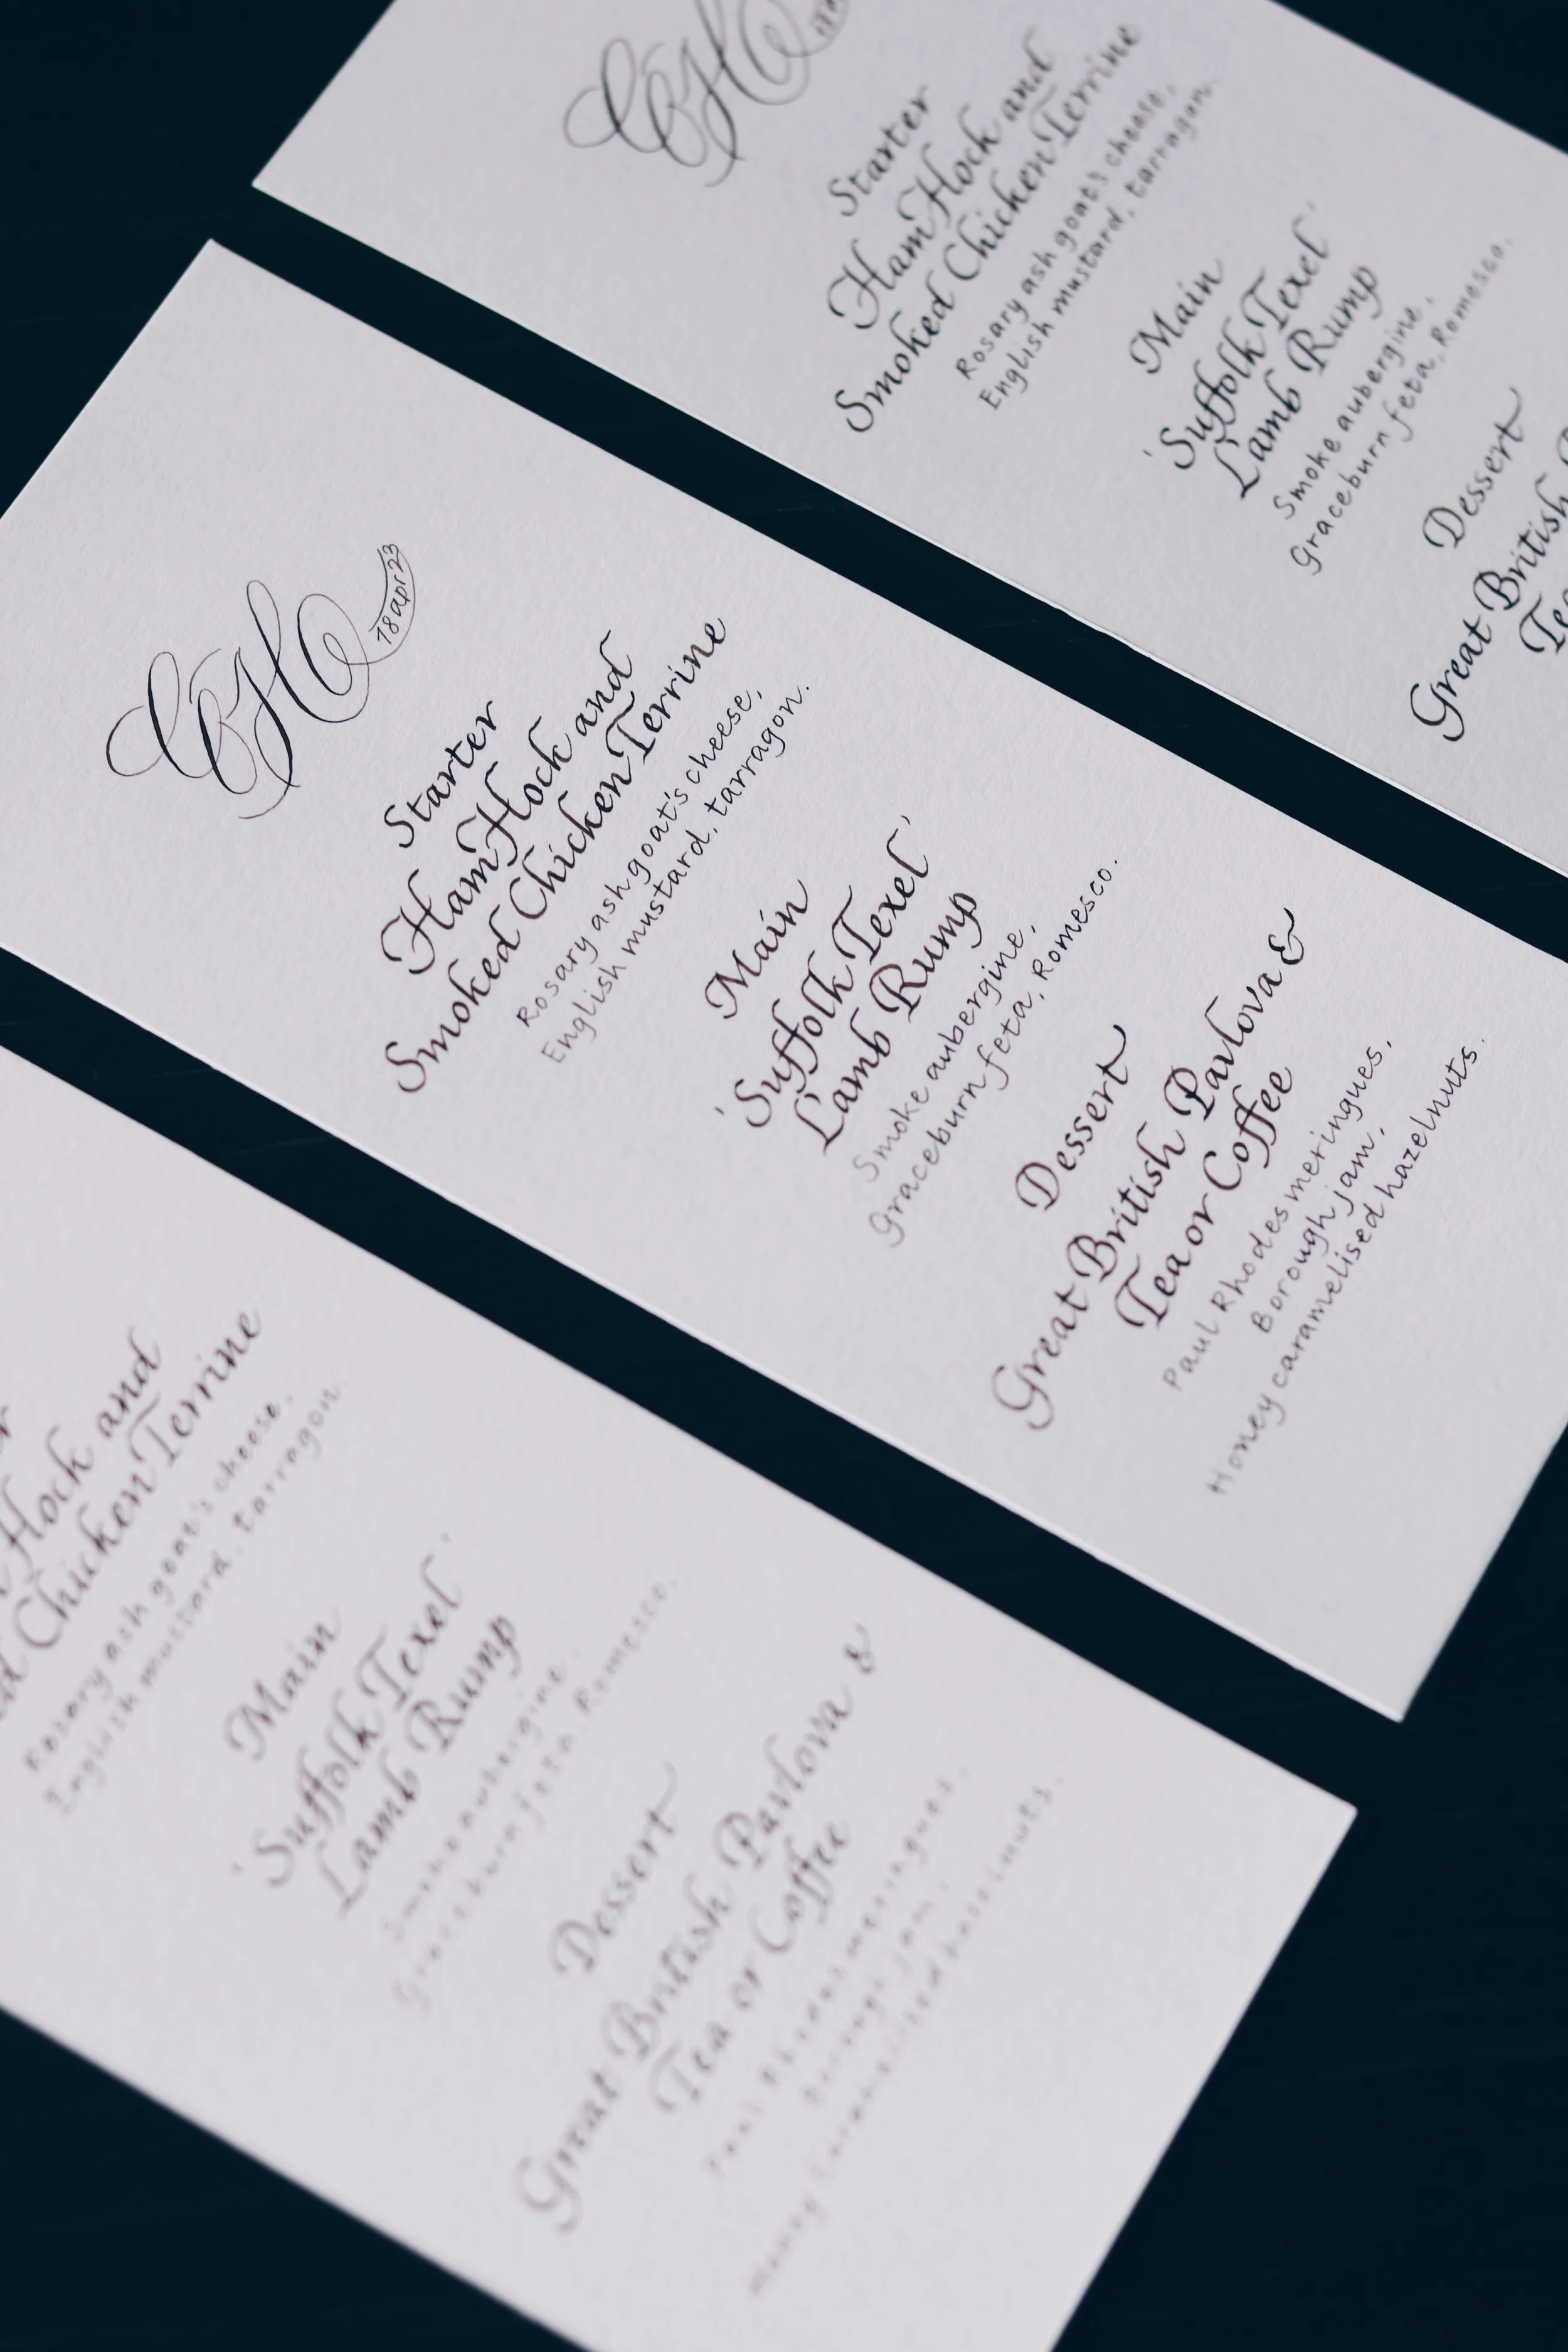 18 apr 23
Starter
Ham Hock and
Smoked Chicken Terrine
Rosary ash goat's cheese,
English mustard, tarragon.
Main
'Suffolk Texel'
Lamb Rump
Smoke aubergine,
Graceburn feta, Romesco.
Dessert
Great British Pavlova &
Tea or Coffee
Paul Rhodes meringues,
Borough jam,
Honey caramelised hazelnuts.
Starter
Ham Hock and
Smoked Chicken Terrine
Rosary ash goat's cheese,
English mustard, tarragon.
Main
'Suffolk Texel'
Lamb Rump
Smoke aubergine,
Graceburn feta, Romesco.
Dessert
Great British
Hock and
Chicken Terrine
Rosary ash goat's cheese,
English mustard, tarragon.
Main
'Suffolk Texel'
Lamb Rump
Smoke aubergine,
Graceburn feta, Romesco.
Dessert
Great British Pavlova &
Tea or Coffee
Paul Rhodes meringues,
Borough jam,
Honey caramelised hazelnuts.